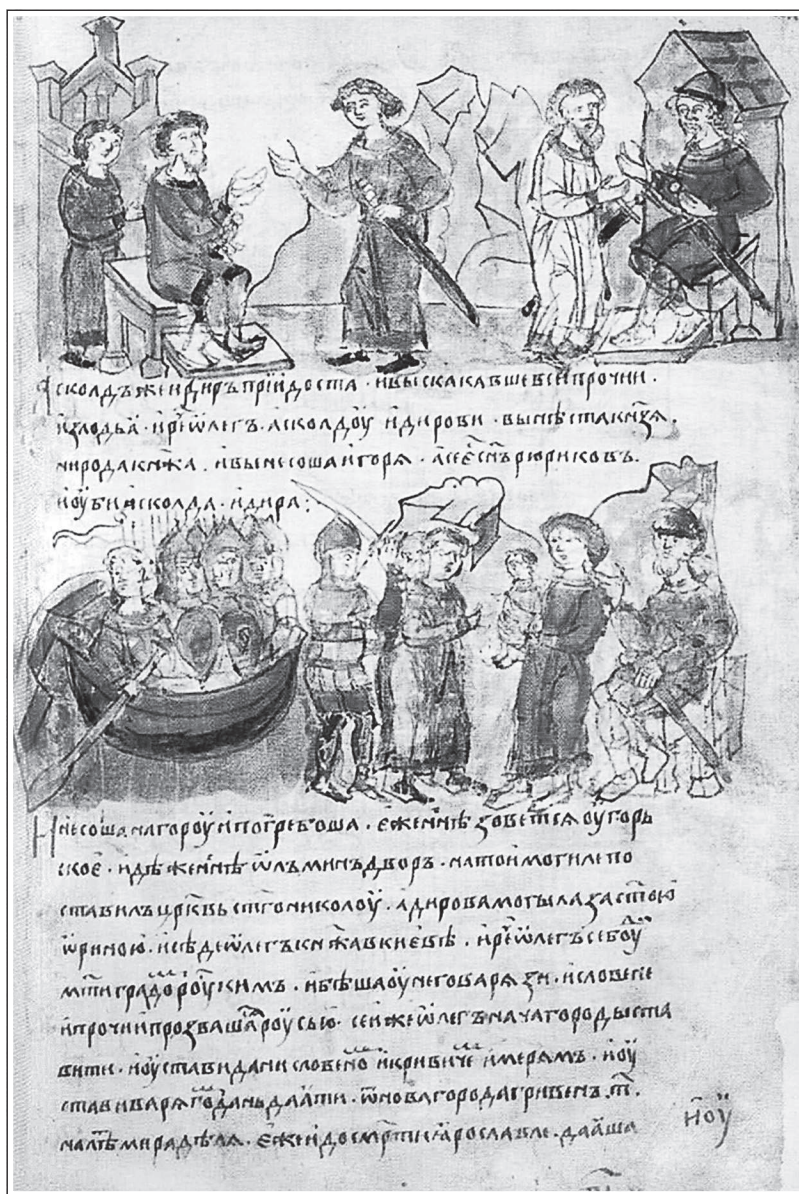 Асколдъ же и Диръ приидоста · и выскакавше вси прочии ·
изъ лодьӕ · и рⷱ҇е ѡлегъ · асколдоу и дирови · вы нѣста кнѧзѧ ·
ни рода кнѧжа · и вынесоша игорѧ · а се єⷭ҇ сн҃ъ рюриковъ ·
и оубиша асколда · и дира :·
И несоша на гороу и погребоша · єже нн҃ѣ зоветсѧ оугорь
скоє · идѣже нн҃ѣ ѡлъминъ дворъ · на тои могиле по
ставилъ цр҃квь ст҃го николоу · а дирова могыла за ст҃ою
ѡриною · и сѣде ѡлегъ кнѧжа в киевѣ · и рⷱ҇е ѡлегъ се боуⷣ
мт҃и градоⷨ роускимъ · и бѣша оу него варѧзи · и словене
и прочи прозвашасѧ роусью · сеи же ѡлегъ нача городы ста
вити · и оустави дани словеноⷨ и кривичеⷨ и мерѧмъ · и оу
стави варѧгоⷨ дань даӕти · ѿ новагорода гривенъ · т҃ ·
на лѣⷮ мира дѣлѧ · єже и до смр҃ти ӕрославле даӕша
ноу